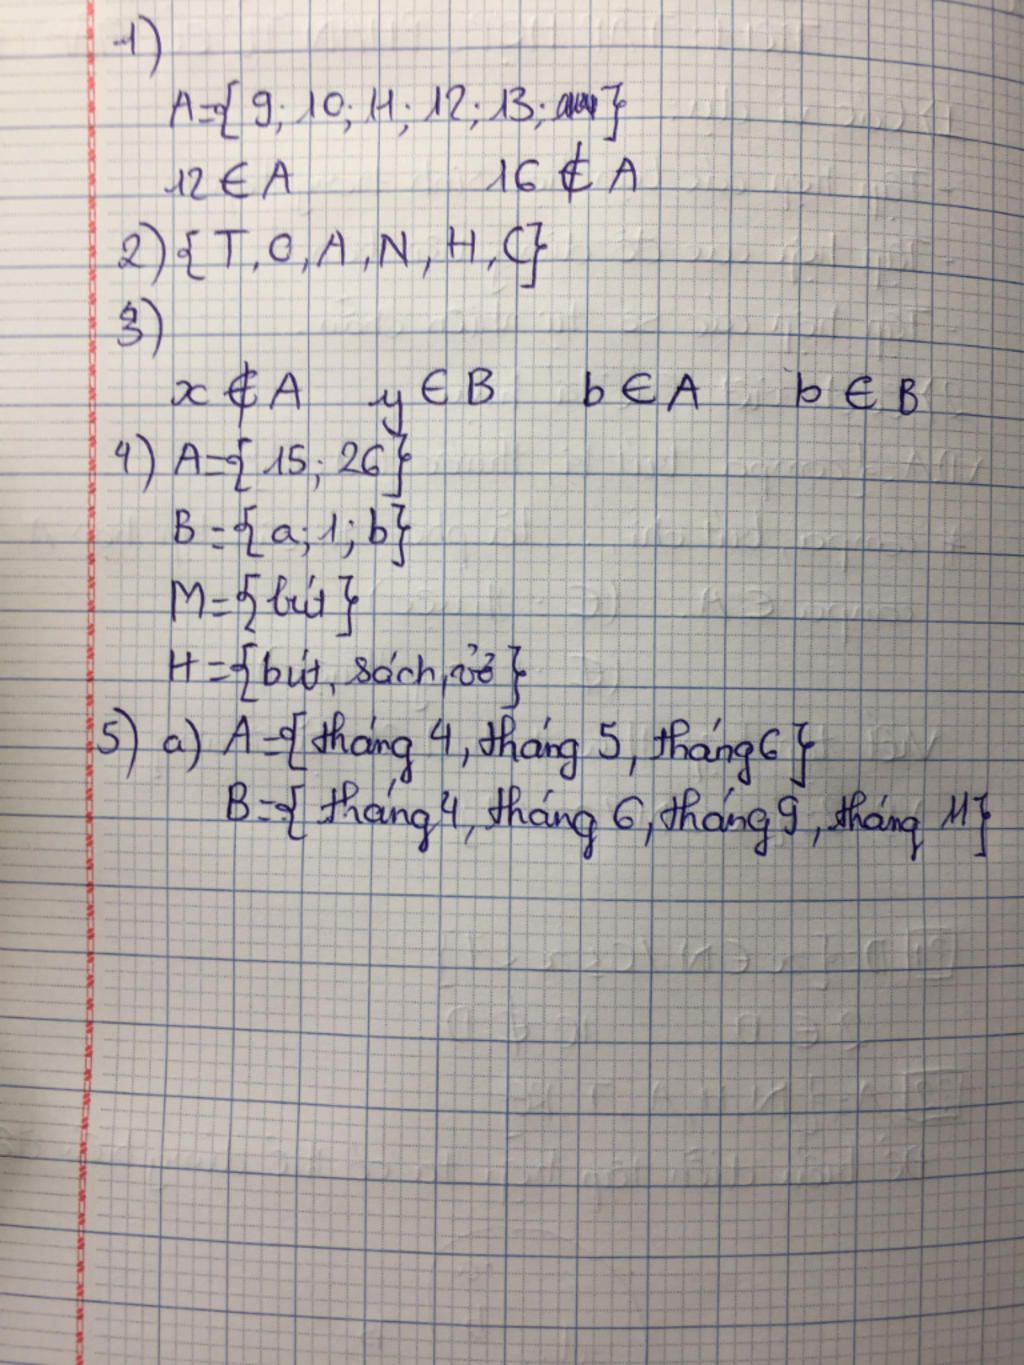 1)
A={9; 10; 11; 12; 13; }
12 ∈ A 16 ∉ A
2) {T, O, A, N, H, C}
3)
x ∉ A y ∈ B b ∈ A b ∈ B
4) A={15; 26}
B={a; 1; b}
M={bút}
H={bút, sách, vở}
5) a) A={tháng 4, tháng 5, tháng 6}
B={tháng 4, tháng 6, tháng 9, tháng 11}